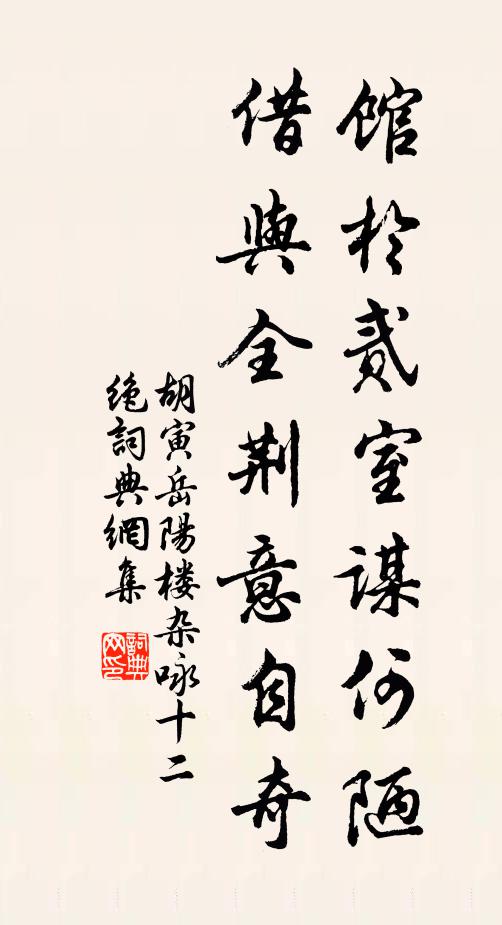 馆於贰室谋何陋
借與全荆意自奇
胡寅岳陽楼杂咏十二
绝詞典網集
詞典
网印